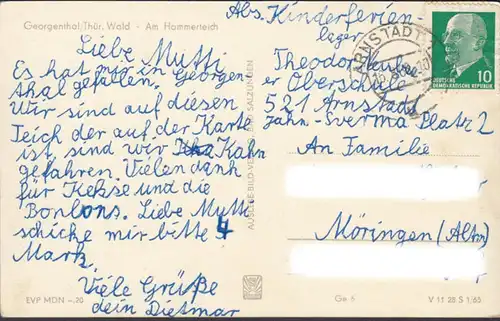 Georgenthal/Thür. Wald - Am Hammerteich
Liebe Mutti
Es hat mir in Georgen-
thal gefallen.
Wir sind auf diesen
Teich der auf der Karte
ist, sind wir Kahn
gefahren. Vielen dank
für Kekse und die
Bonbons. Liebe Mutti
schicke mir bitte 4
Mark.
Viele Grüße
dein Dietmar
EVP MDN -,20
Abs. Kinderferien-
lager
Theodor
er Oberschule
521 Arnstadt
Jahn-Sverma Platz 2
An Familie
Möringen (Altm)
Ge 6
V 11 28 S 1/65
ARNSTADT
10
DEUTSCHE
DEMOKRATISCHE REPUBLIK